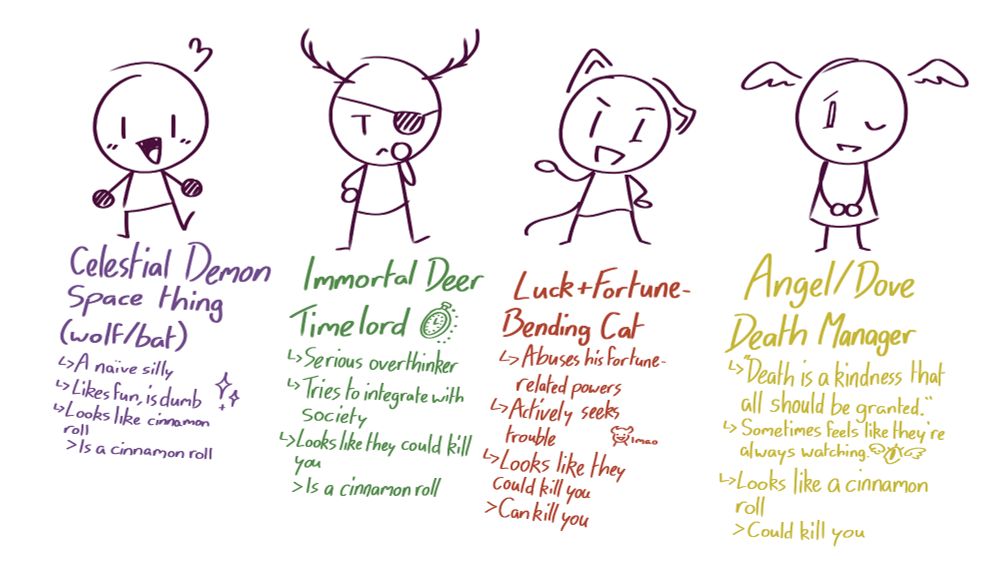 Celestial Demon
Space thing
(wolf/bat)
↳A naïve silly
↳Likes fun, is dumb
↳Looks like cinnamon
roll
>Is a cinnamon roll
Immortal Deer
Timelord
↳Serious overthinker
↳Tries to integrate with
society
↳Looks like they could kill
you
>Is a cinnamon roll
Luck+Fortune-
Bending Cat
↳Abuses his fortune-
related powers
↳Actively seeks
trouble
lmao
↳Looks like they
could kill you
>Can kill you
Angel/Dove
Death Manager
↳"Death is a kindness that
all should be granted."
↳Sometimes feels like they're
always watching.
↳Looks like a cinnamon
roll
>Could kill you